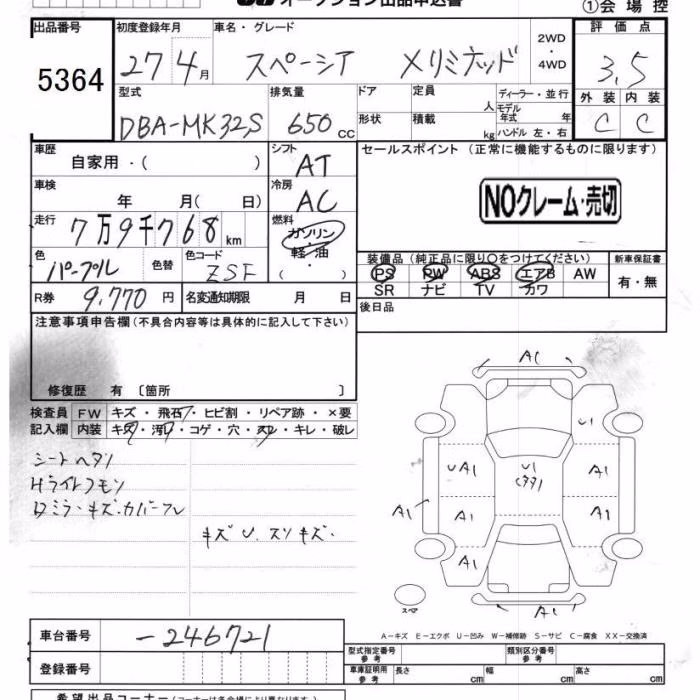 オークション出品申込書
①会場控
出品番号 初度登録年月 車名・グレード 2WD・4WD 評価点
5364 27 4月 スペーシア 3.5
型式 排気量 ドア 定員 人 ディーラー・並行 外装 内装
DBA-MK32S 650 CC 形状 積載 kg モデル年式 年 ハンドル 左・右 C C
車歴 自家用・( ) シフト AT セールスポイント (正常に機能するものに限ります)
車検 年 月( 日) 冷房 AC NOクレーム・売切
走行 7万9千768km 燃料 ガソリン・軽油・( )
色 パープル 色替 色コード ZSF
装備品 (純正品に限り○をつけてください) 新車保証書
PS PW ABS エアB AW 有・無
SR ナビ TV カワ
R券 9,770円 名変通知期限 月 日 後日品
注意事項申告欄(不具合内容等は具体的に記入して下さい)
修復歴 有 〔箇所 〕
検査員 FW キズ・飛石・ヒビ割・リペア跡・×要
記入欄 内装 キズ・汚レ・コゲ・穴・スレ・キレ・破レ
シートヘタリ
Hライトクモリ
Dミラーキズ.カバーフレ
キズU.スリキズ.
A1
U1
UA1 U1 A1
A1 A1 A1
A1 A1
A1
スペア
A-キズ E-エクボ U-凹み W-補修跡 S-サビ C-腐食 XX-交換済
車台番号 -246721
型式指定番号 参考 類別区分番号 参考
登録番号 車庫証明用 参考 長さ cm 幅 cm 高さ cm
希望出品コーナー